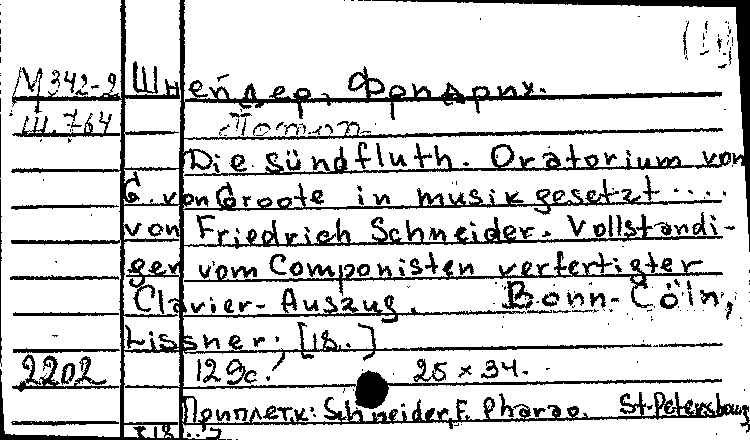 (1г)
М342-2 Шнейдер, Фридрих.
Ш.764 Потоп
Die Sündfluth. Oratorium von
G. von Groote in musik gesetzt ....
von Friedrich Schneider. Vollständi-
ger vom Componisten verfertigter
Clavier-Auszug. Bonn-Cöln,
Lissner, [18..]
2202 129с. 25 × 34.
Приплетк: Schneider, F. Pharao. St-Petersbourg
[18..]